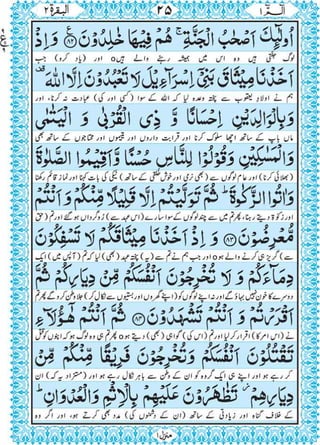 البقرة ٢
٢٥
الٓمّٓ ١
اُولٰٓئِكَ اَصْحٰبُ الْجَنَّةِ ۚ هُمْ فِيْهَا خٰلِدُوْنَ ﴿٨٢﴾ وَ اِذْ
لوگ جنتی ہیں وہ اس میں ہمیشہ رہنے والے ہیں o اور (یاد کرو) جب
اَخَذْنَا مِيْثَاقَ بَنِيْۤ اِسْرَآءِيْلَ لَا تَعْبُدُوْنَ اِلَّا اللّٰهَ
ہم نے اولادِ یعقوب سے پختہ وعدہ لیا کہ اللہ کے سوا (کسی اور کی) عبادت نہ کرنا، اور
وَ بِالْوَالِدَيْنِ اِحْسَانًا وَّ ذِي الْقُرْبٰى وَ الْيَتٰمٰى
ماں باپ کے ساتھ اچھا سلوک کرنا اور قرابت داروں اور یتیموں اور محتاجوں کے ساتھ بھی
وَ الْمَسٰكِيْنِ وَ قُوْلُوْا لِلنَّاسِ حُسْنًا وَّ اَقِيْمُوا الصَّلٰوةَ
(بھلائی کرنا) اور عام لوگوں سے (بھی نرمی اور خوش خلقی کے ساتھ) نیکی کی بات کہنا اور نماز قائم رکھنا
وَ اٰتُوا الزَّكٰوةَ ؕ ثُمَّ تَوَلَّيْتُمْ اِلَّا قَلِيْلًا مِّنْكُمْ وَ اَنْتُمْ
اور زکوٰۃ دیتے رہنا، پھر تم میں سے چند لوگوں کے سوا سارے (اس عہد سے) روگرداں ہو گئے اور تم (حق
مُّعْرِضُوْنَ ﴿٨٣﴾ وَ اِذْ اَخَذْنَا مِيْثَاقَكُمْ لَا تَسْفِكُوْنَ
سے) گریز ہی کرنے والے ہو o اور جب ہم نے تم سے (یہ) پختہ عہد (بھی) لیا کہ تم (آپس میں) ایک
دِمَآءَكُمْ وَ لَا تُخْرِجُوْنَ اَنْفُسَكُمْ مِّنْ دِيَارِكُمْ ثُمَّ
دوسرے کا خون نہیں بہاؤ گے اور نہ اپنے لوگوں کو (اپنے گھروں اور بستیوں سے نکال کر) جلاوطن کرو گے پھر تم
اَقْرَرْتُمْ وَ اَنْتُمْ تَشْهَدُوْنَ ﴿٨٤﴾ ثُمَّ اَنْتُمْ هٰۤؤُلَآءِ
نے (اس امر کا) اقرار کر لیا اور تم (اس کی) گواہی (بھی) دیتے ہو o پھر تم ہی وہ لوگ ہو کہ اپنوں کو قتل
تَقْتُلُوْنَ اَنْفُسَكُمْ وَ تُخْرِجُوْنَ فَرِيْقًا مِّنْكُمْ مِّنْ
کر رہے ہو اور اپنے ہی ایک گروہ کو ان کے وطن سے باہر نکال رہے ہو اور (مستزاد یہ کہ) ان
دِيَارِهِمْ ؗ تَظٰهَرُوْنَ عَلَيْهِمْ بِالْاِثْمِ وَ الْعُدْوَانِ ؕ
کے خلاف گناہ اور زیادتی کے ساتھ (ان کے دشمنوں کی) مدد بھی کرتے ہو، اور اگر وہ
منزل ١